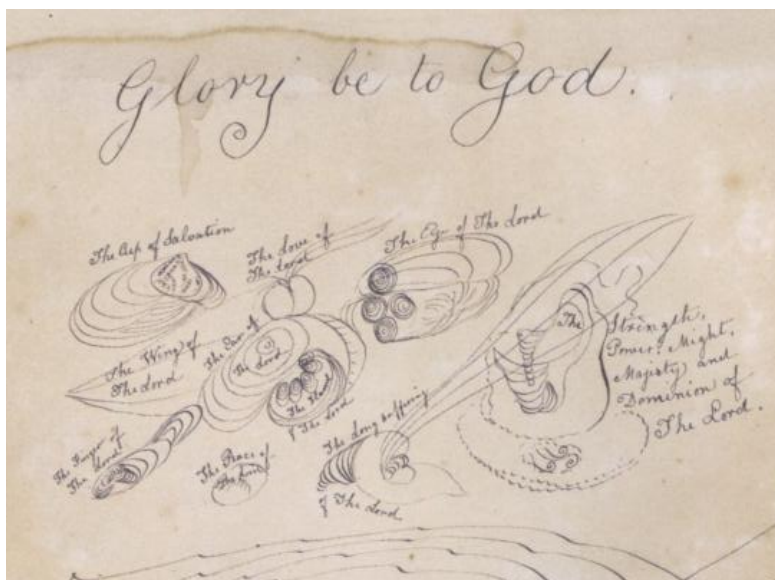 Glory be to God.
The Cup of Salvation
The Love of
The Lord
The Eye of The Lord
The Wing of
The Lord
The Ear of
The Lord
The Hand
of The Lord
The Finger of
The Lord
The Peace of
The Lord
The Long suffering
of The Lord
The Strength,
Power, Might,
Majesty and
Dominion of
The Lord.